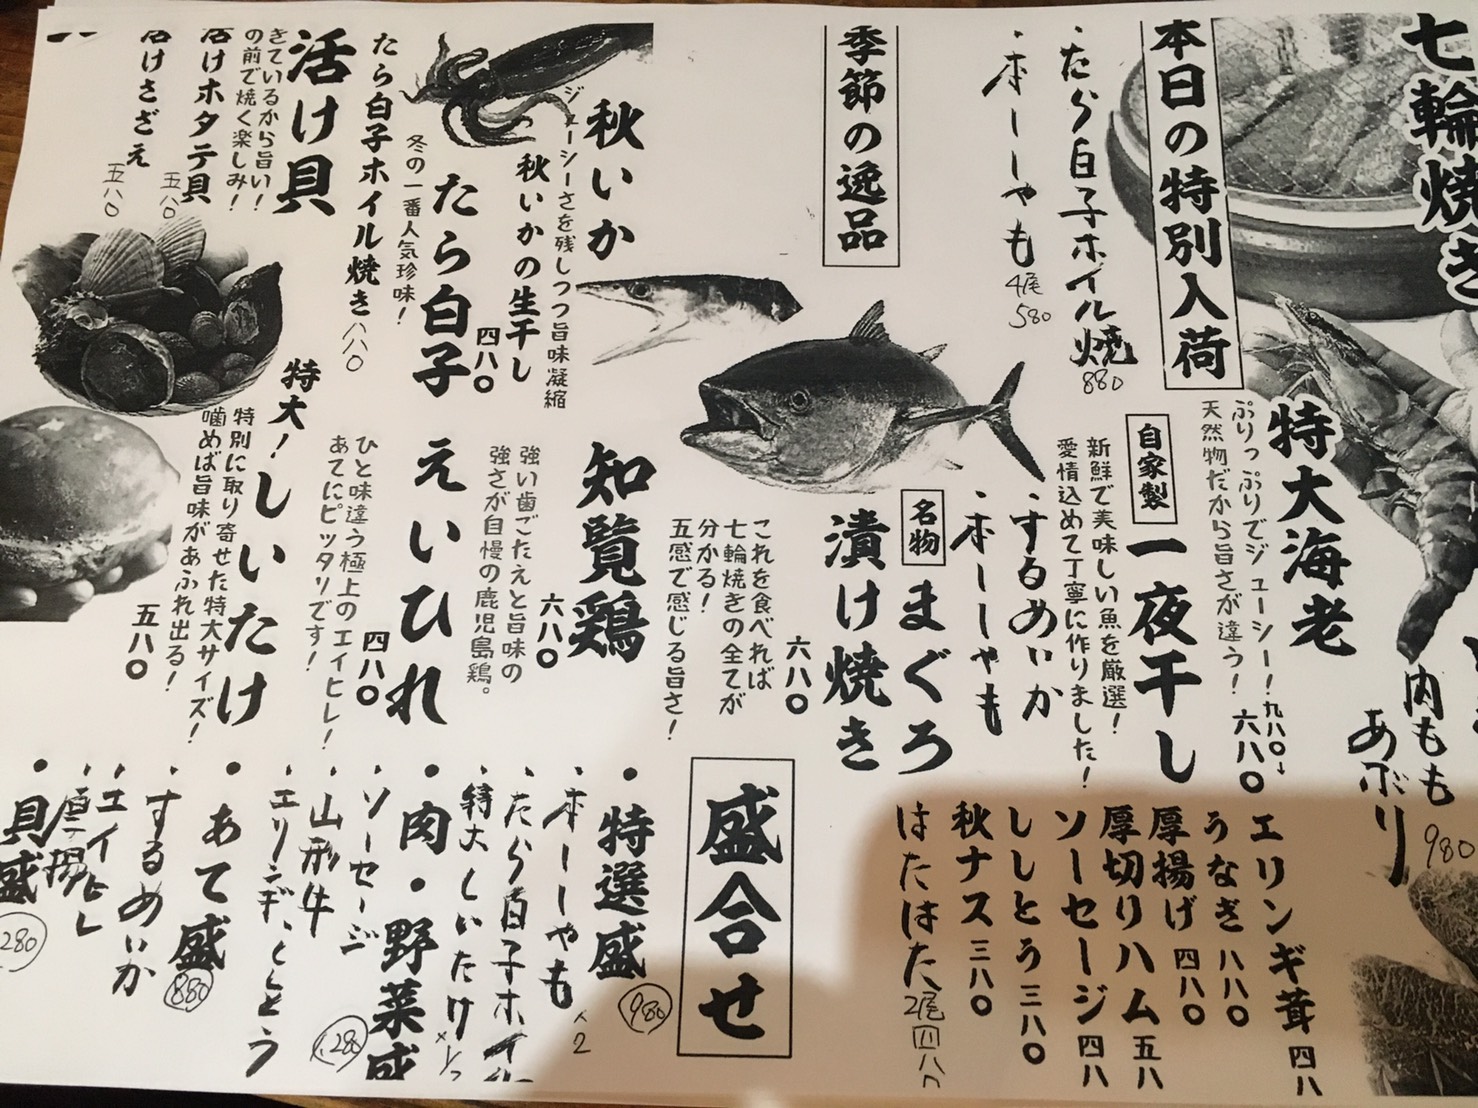 七輪焼き
本日の特別入荷
・たら白子ホイル焼
880
・本ししゃも
4尾
580
季節の逸品
秋いか
ジューシーさを残しつつ旨味凝縮
秋いかの生干し
四八〇
たら白子
冬の一番人気珍味!
たら白子ホイル焼き
八八〇
活け貝
きているから旨い!
の前で焼く楽しみ!
活けホタテ貝
五八〇
活けさざえ
五八〇
特大海老
ぷりっぷりでジューシー!
天然物だから旨さが違う!
九八〇→
六八〇
自家製
一夜干し
新鮮で美味しい魚を厳選!
愛情込めて丁寧に作りました!
・するめいか
・本ししゃも
名物
まぐろ
漬け焼き
六八〇
これを食べれば
七輪焼きの全てが
分かる!
五感で感じる旨さ!
知覧鶏
六八〇
強い歯ごたえと旨味の
強さが自慢の鹿児島鶏。
えいひれ
四八〇
ひと味違う極上のエイヒレ!
あてにピッタリです!
特大!しいたけ
特別に取り寄せた特大サイズ!
噛めば旨味があふれ出る!
五八〇
内もも
あぶり
980
エリンギ茸 四八
うなぎ 八八〇
厚揚げ 四八〇
厚切りハム 五八
ソーセージ 四八
ししとう 三八〇
秋ナス 三八〇
はたはた 2尾 四八〇
盛合せ
・特選盛
980
・本ししゃも
×2
・たら白子ホイル
・特大しいたけ
×1/2
・肉・野菜盛
1,280
・ソーセージ
・山形牛
・エリンギ、ししとう
・あて盛
880
・するめいか
・エイヒレ
・厚揚
・貝盛
280